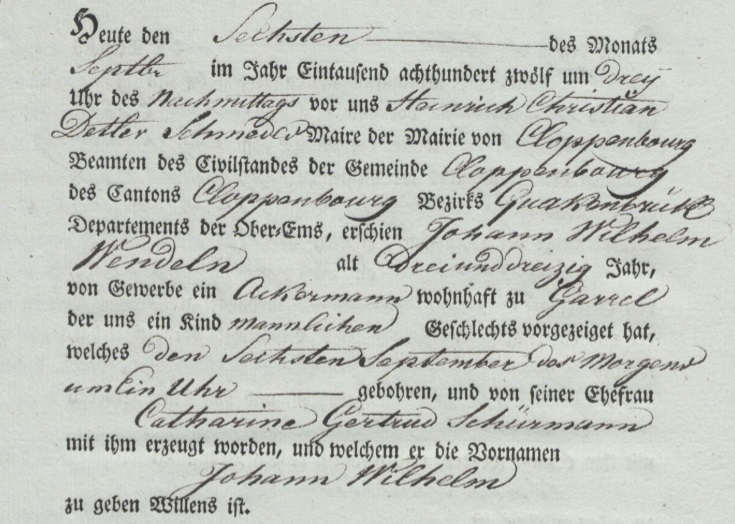 Heute den Sechsten des Monats
Septbr im Jahr Eintausend achthundert zwölf um drey
Uhr des Nachmittags vor uns Heinrich Christian
Detlev Schmedes Maire der Mairie von Cloppenbourg
Beamten des Civilstandes der Gemeinde Cloppenbourg
des Cantons Cloppenbourg Bezirks Quakenbrück
Departements der Ober-Ems, erschien Johann Wilhelm
Wendeln alt dreiunddreizig Jahr,
von Gewerbe ein Ackermann wohnhaft zu Garrel
der uns ein Kind mannlichen Geschlechts vorgezeiget hat,
welches den Sechsten September des Morgens
um Ein Uhr gebohren, und von seiner Ehefrau
Catharine Gertrud Schürmann
mit ihm erzeugt worden, und welchem er die Vornamen
Johann Wilhelm
zu geben Willens ist.